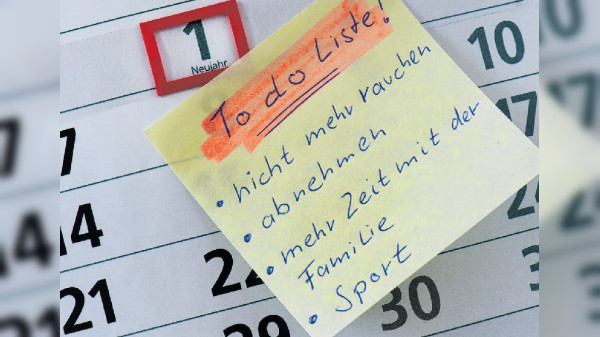 1
Neujahr
To do Liste!
• nicht mehr rauchen
• abnehmen
• mehr Zeit mit der
Familie
• Sport
10
7
17
14
21
30